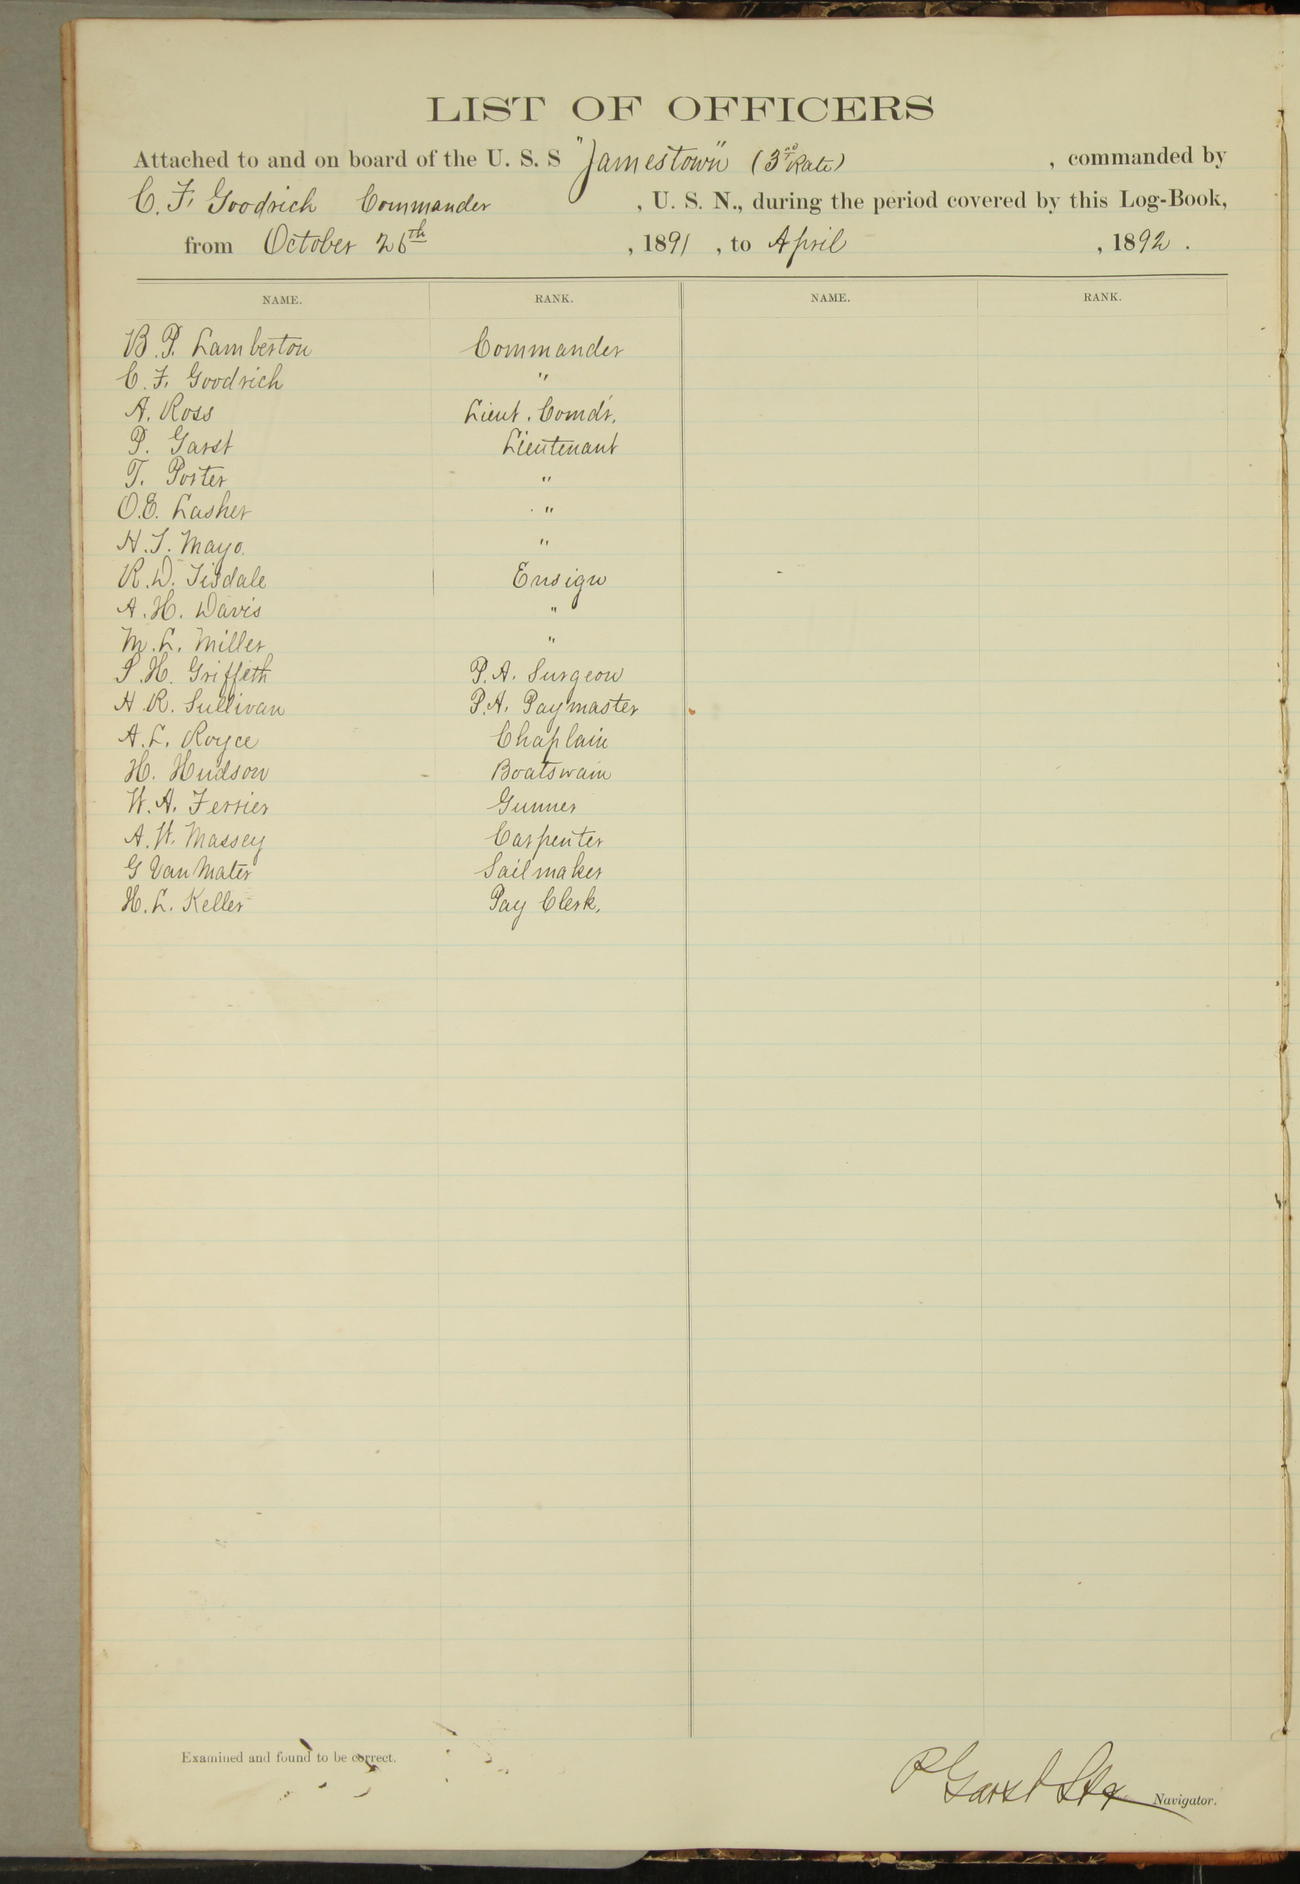 LIST OF OFFICERS
Attached to and on board of the U. S. S "Jamestown" (3rd Rate) , commanded by
C. F. Goodrich Commander , U. S. N., during the period covered by this Log-Book,
from October 26th , 1891 , to April , 1892 .
NAME. RANK. NAME. RANK.
B. P. Lamberton Commander
C. F. Goodrich "
A. Ross Lieut. Comdr.
P. Garst Lieutenant
T. Porter "
O.E. Lasher "
H.T. Mayo. "
R.D. Tisdale Ensign
A. H. Davis "
M. L. Miller "
S. H. Griffith P.A. Surgeon
H R. Sullivan P.A. Paymaster
A. L. Royce Chaplain
H. Hudson Boatswain
W. A. Ferrier Gunner
A. W. Massey Carpenter
G Van Mater Sailmaker
H. L. Keller Pay Clerk,
Examined and found to be correct.
P Garst Navigator.